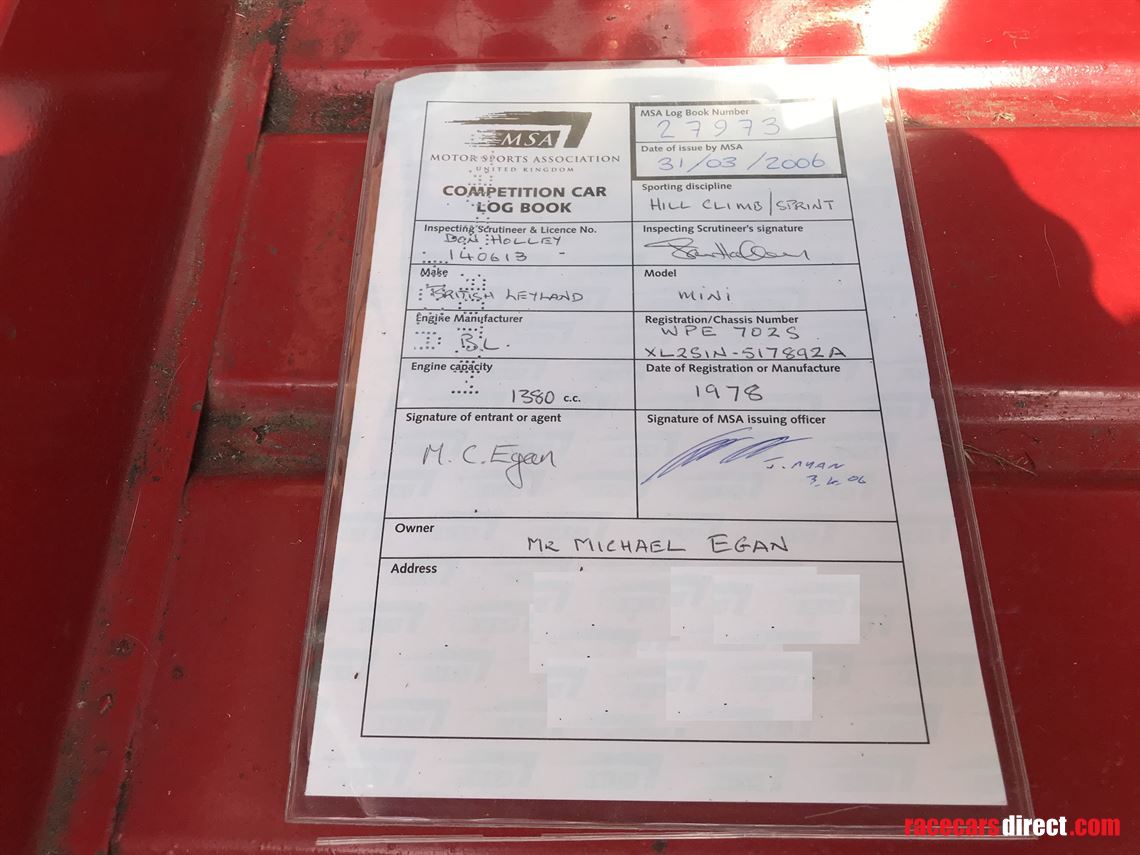 MSA
MOTOR SPORTS ASSOCIATION
UNITED KINGDOM
COMPETITION CAR
LOG BOOK
MSA Log Book Number
27973
Date of issue by MSA
31/03/2006
Sporting discipline
HILL CLIMB/SPRINT
Inspecting Scrutineer & Licence No.
DON HOLLEY
140613
Inspecting Scrutineer's signature
Make
BRITISH LEYLAND
Model
MINI
Engine Manufacturer
B.L.
Registration/Chassis Number
WPE 702S
XL2S1N-517892A
Engine capacity
1380 c.c.
Date of Registration or Manufacture
1978
Signature of entrant or agent
M. C. Egan
Signature of MSA issuing officer
J. RYAN
3.4.06
Owner
MR MICHAEL EGAN
Address
racecarsdirect.com